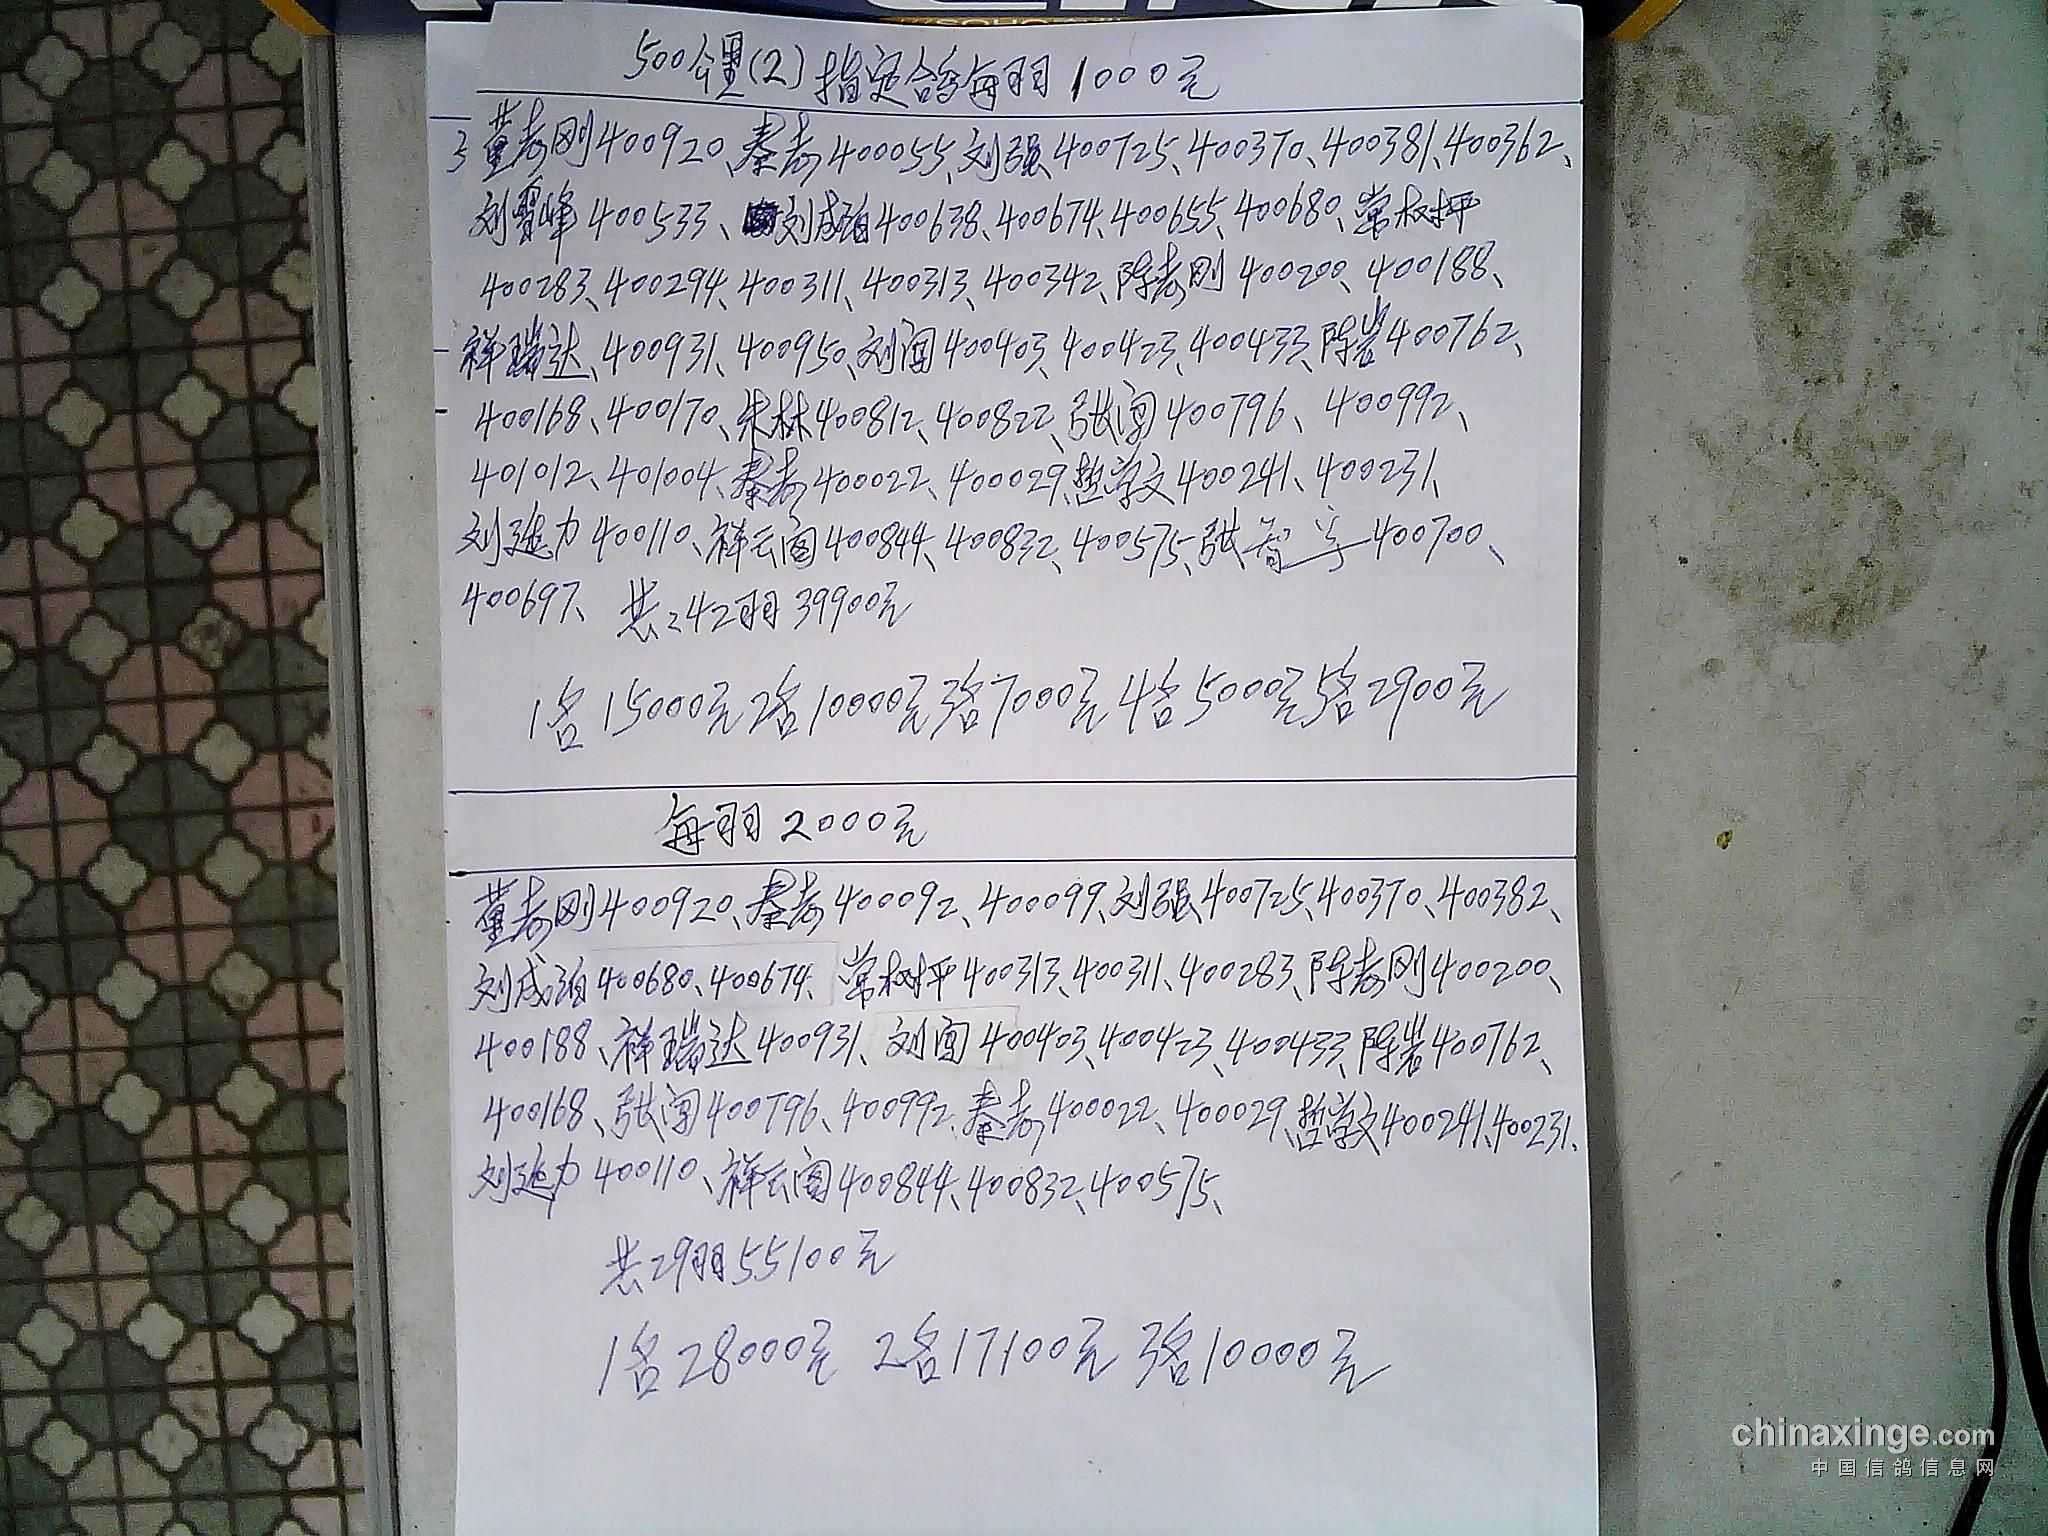 500公里(2)指定鸽每羽1000元
3 董春刚400920、秦春400055、刘强400725、400370、400381、400362、
刘雪峰400533、刘成珀400638、400674、400655、400680、常树坪
400283、400294、400311、400313、400342、陈春刚400200、400188、
祥瑞达、400931、400950、刘闯400403、400423、400433、陈岩400762、
400168、400170、朱林400812、400822、张闯400796、400992、
401012、401004、秦春400022、400029、哲学文400241、400231、
刘建力400110、祥云阁400844、400832、400575、张智宇400700、
400697、 共:42羽39900元
1名15000元2名10000元3名7000元4名5000元5名2900元
每羽2000元
董春刚400920、秦春400092、400099、刘强400725、400370、400382、
刘成珀400680、400674、常树坪400313、400311、400283、陈春刚400200、
400188、祥瑞达400931、刘闯400403、400423、400433、陈岩400762、
400168、张闯400796、400992、秦春400022、400029、哲学文400241、400231、
刘建力400110、祥云阁400844、400832、400575、
共29羽55100元
1名28000元 2名17100元 3名10000元
chinaxinge.com
中国信鸽信息网